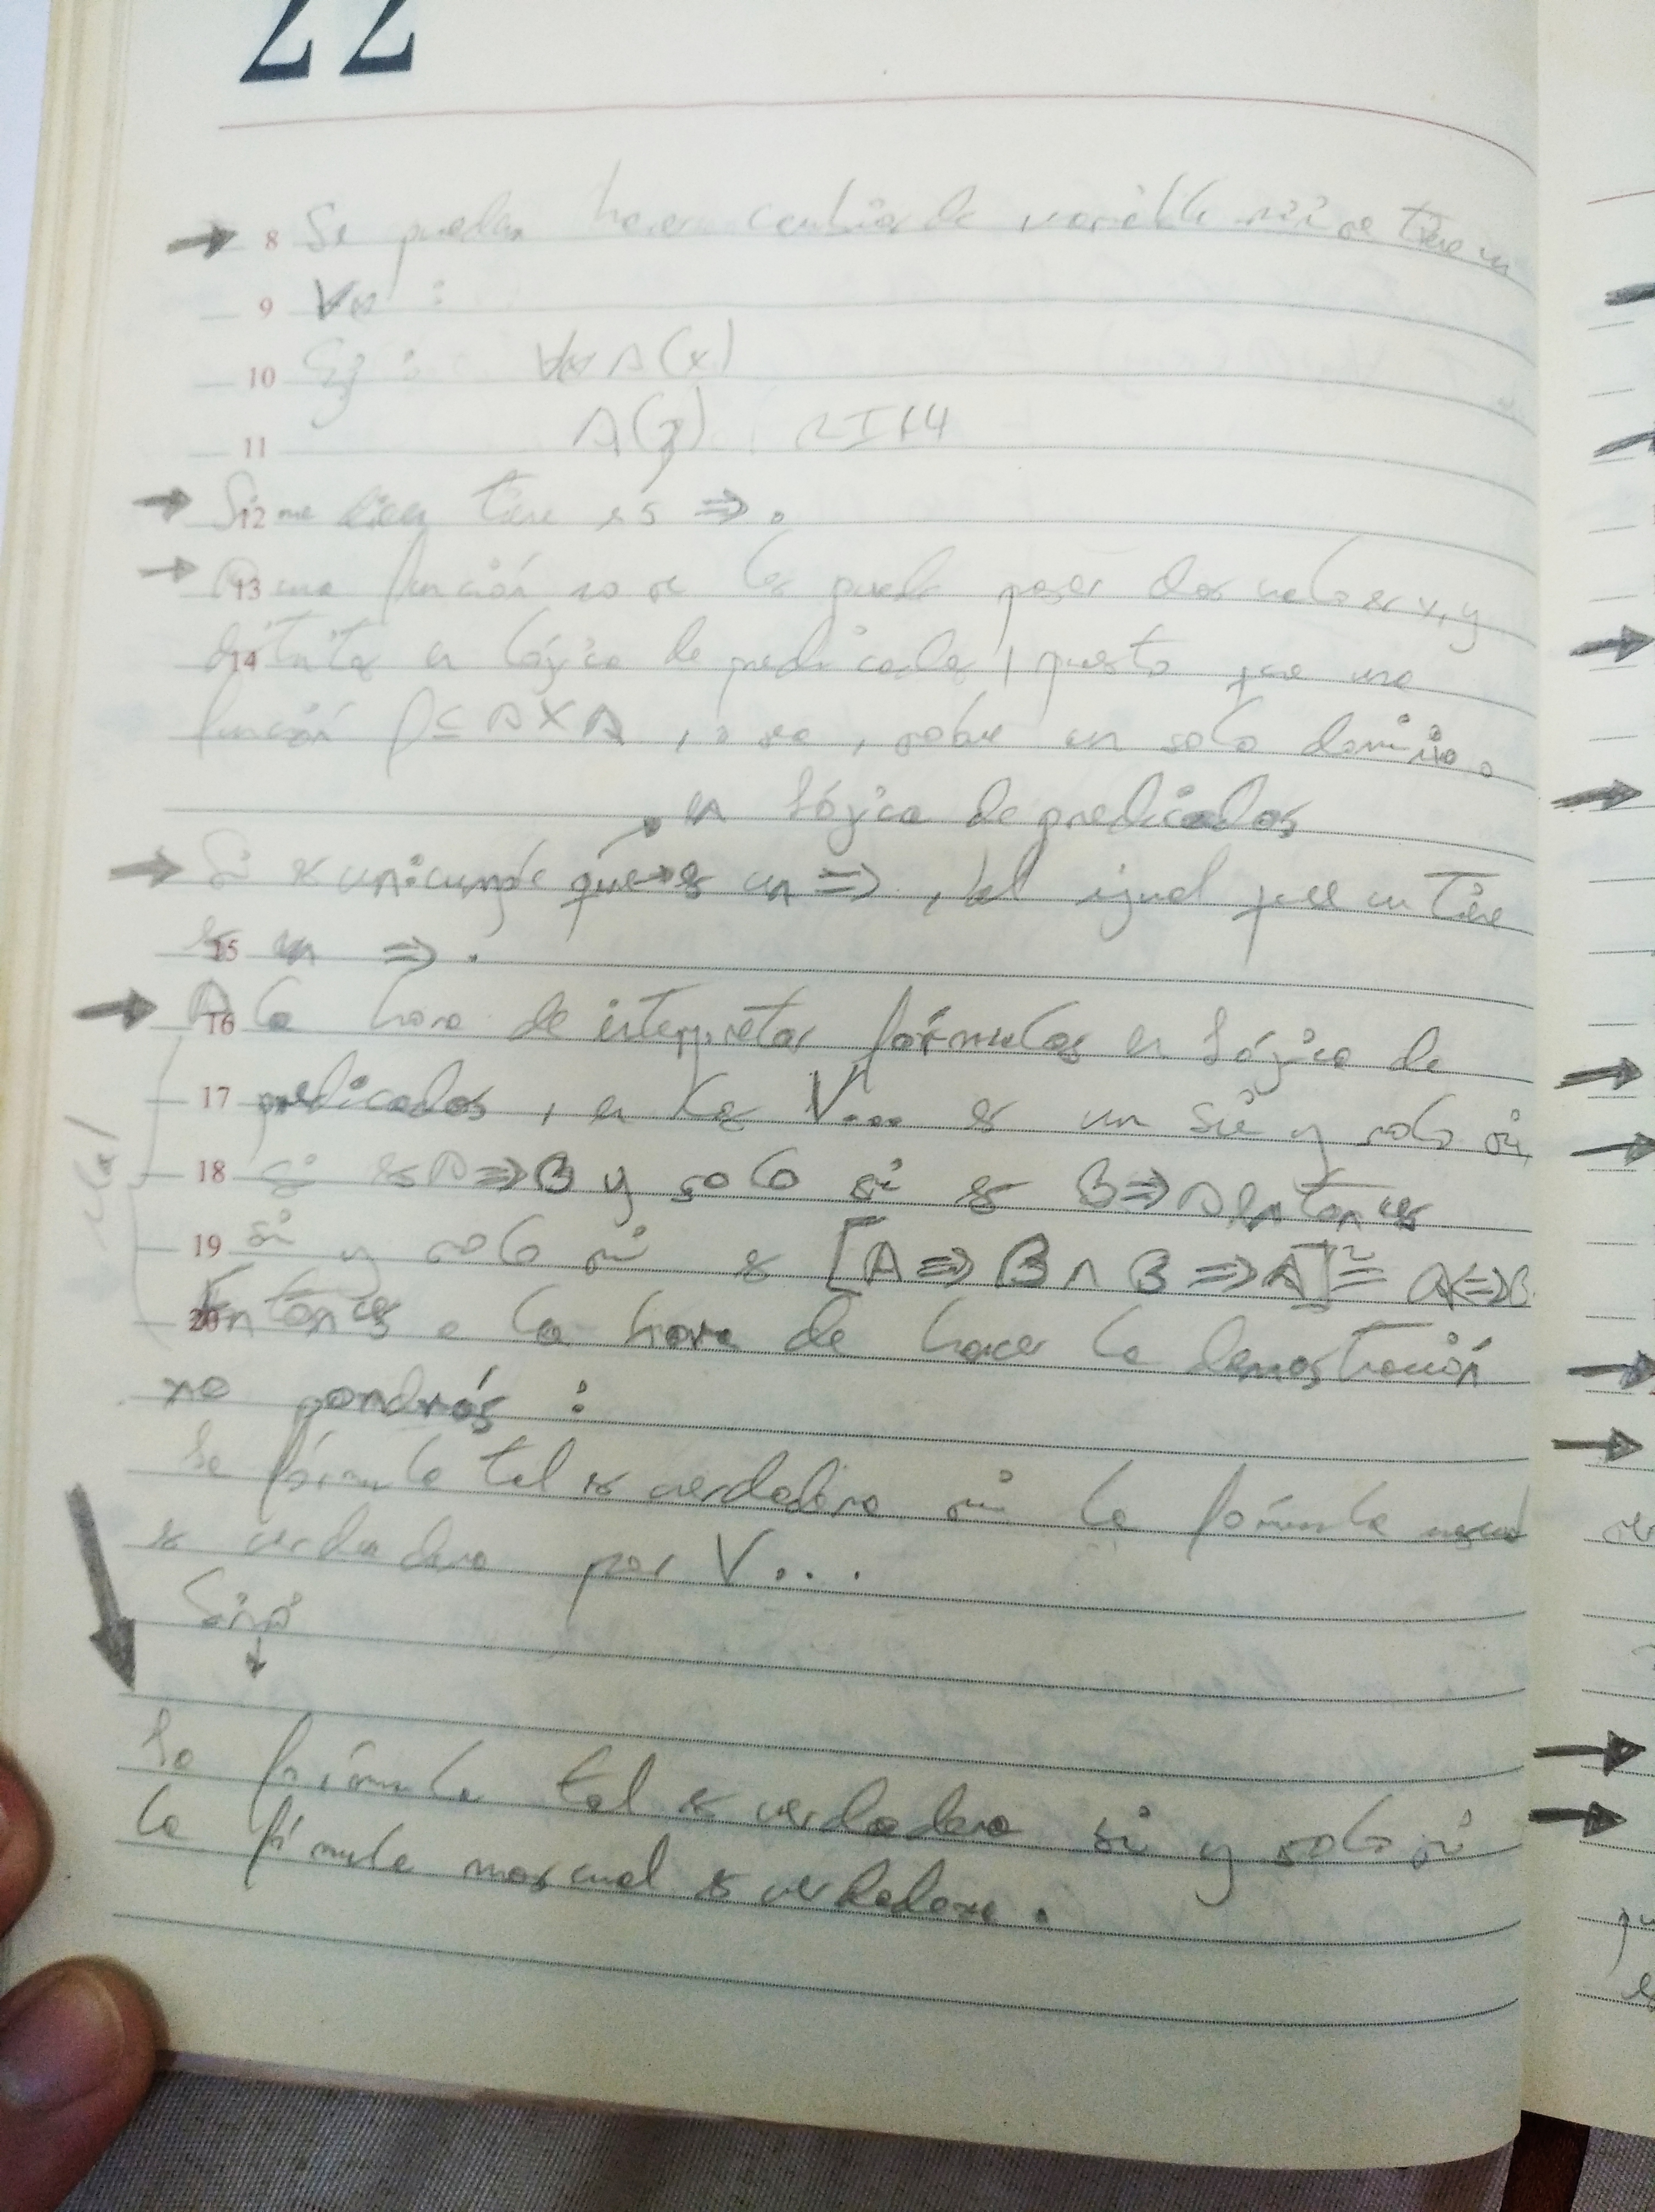 22
8 Se pueden hacer cambios de variable si se tiene un
9 ∀x :
10 Ej : ∀x A(x)
11 A(y)
12 Si me dicen tiene es ⇒.
13 A una función no se les puede poner dos valores x, y
14 distintos en lógica de predicados, puesto que una
función f ⊆ A X A, o sea, sobre un solo dominio.
en lógica de predicados
Si es un que → es un ⇒, al igual que un tiene
15 es un ⇒.
16 A la hora de interpretar fórmulas en lógica de
17 predicados, en las V... es un Si y solo si,
18 si es A ⇒ B y solo si es B ⇒ A Entonces
19 si y solo si es [A ⇒ B ∧ B ⇒ A] ≡ A ⇔ B
20 Entonces a la hora de hacer la demostración
no pondrás :
la fórmula tal es verdadera si la fórmula
es verdadera por V...
Sinó
↓
La fórmula tal es verdadera si y solo si
la fórmula es verdadera.
Mal